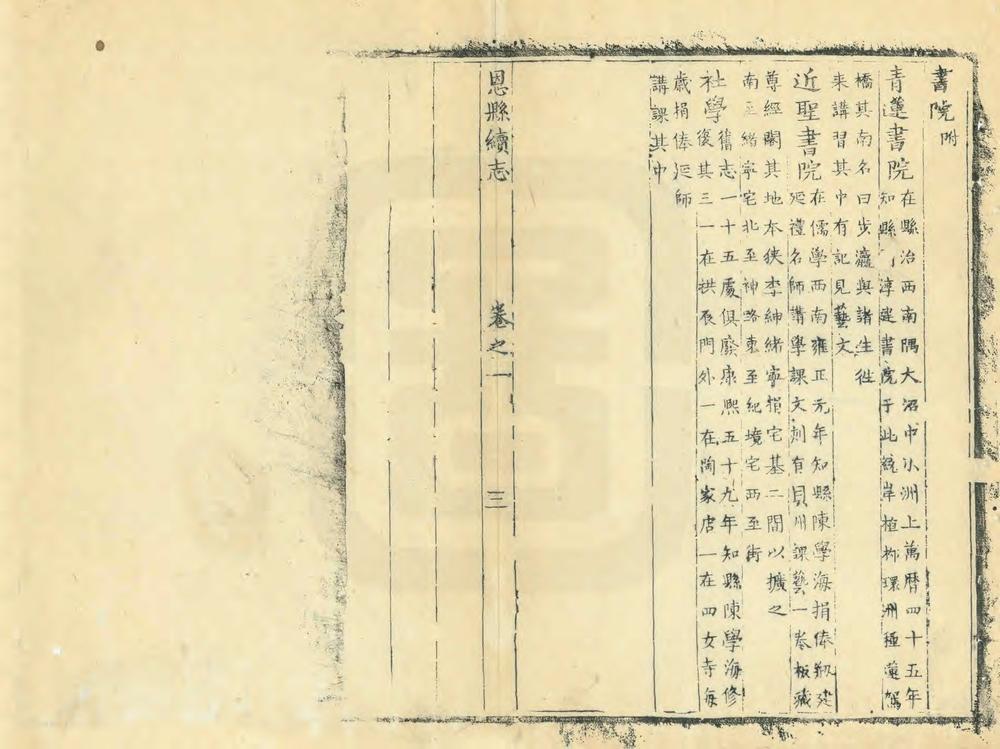 書院附
青蓮書院
在縣治西南隅大沼中小洲上萬曆四十五年
知縣 淳建書院于此繞岸植柳環洲種蓮駕
橋其南名曰步瀛與諸生徃
来講習其中有記見藝文
近聖書院
在儒學西南雍正元年知縣陳學海捐俸剏建
延禮名師講學課文刻有貝州課藝一卷板藏
尊經閣其地本狹李紳緒寧捐宅基二間以擴之
南至緒寧宅北至神路東至紀境宅西至街
社學
舊志一十五處俱廢康熙五十九年知縣陳學海修
後其三一在拱辰門外一在陶家店一在四女寺每
歲捐俸延師
講課其中
恩縣續志
卷之一
三